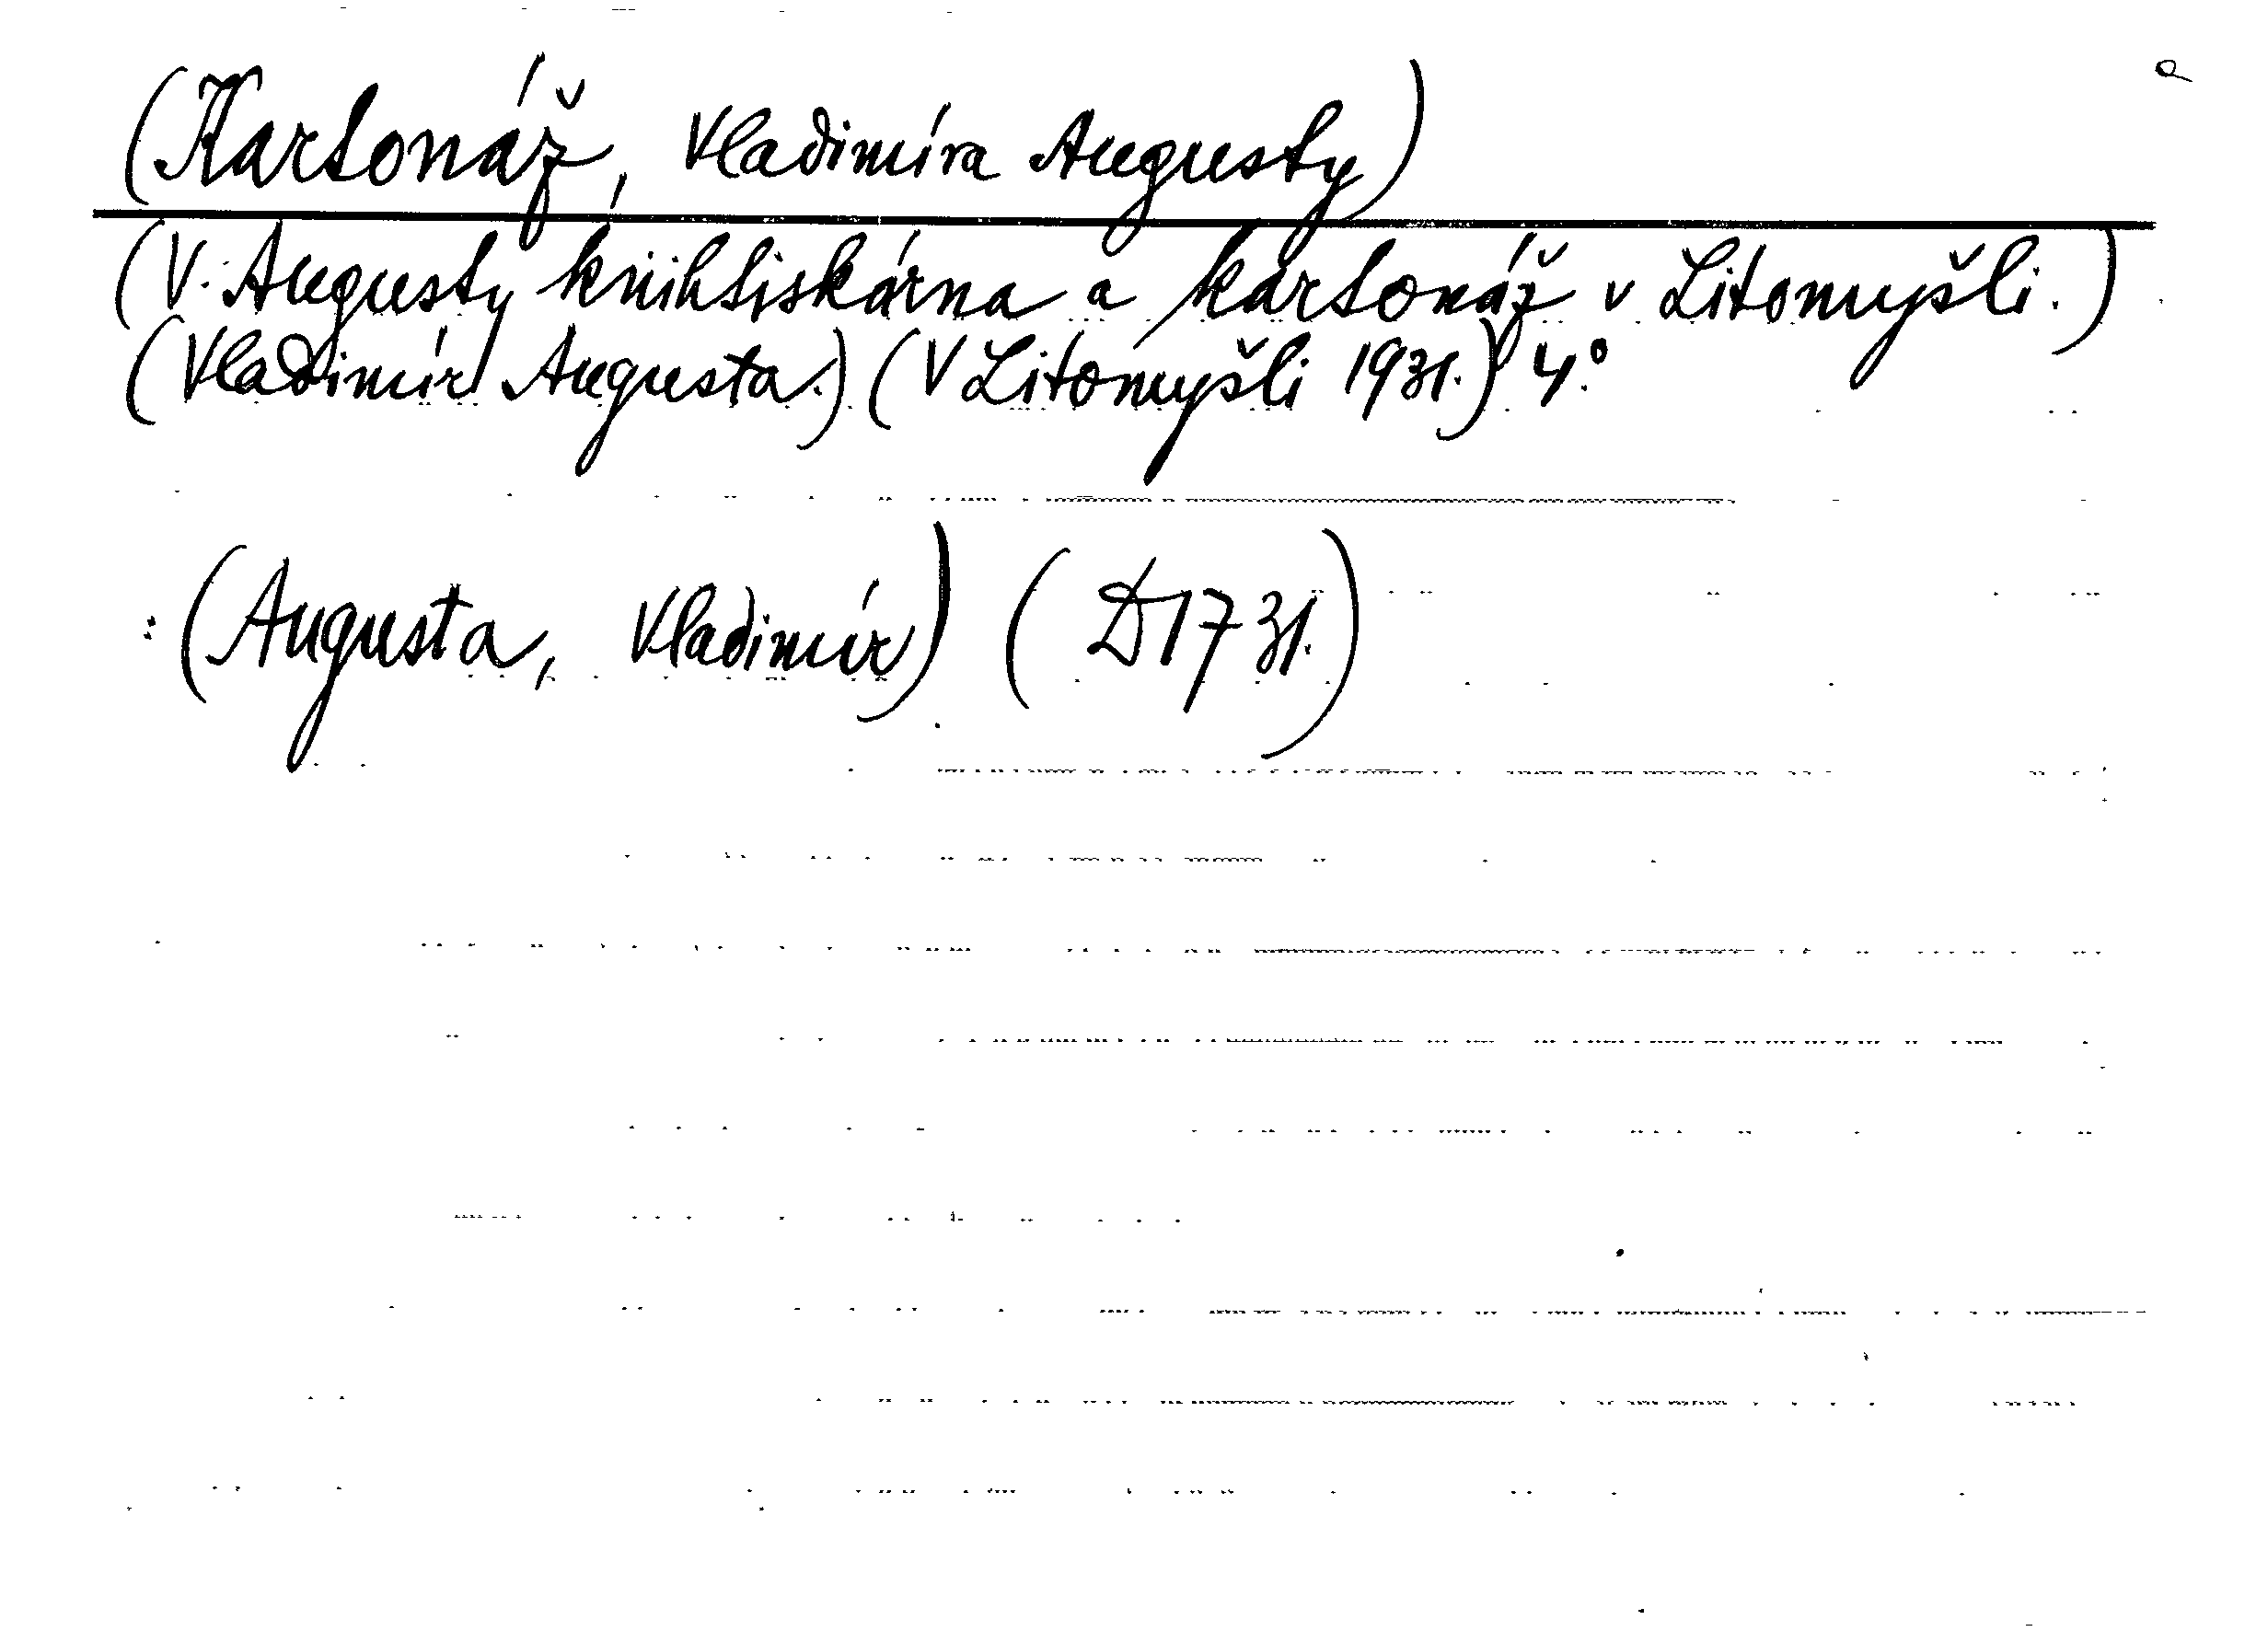 (Kartonáž, Vladimíra Augusty)
(V. Augusty knihtiskárna a kartonáž v Litomyšli.)
(Vladimír Augusta.) (V Litomyšli 1931.) 4.°
: (Augusta, Vladimír) (D1731.)